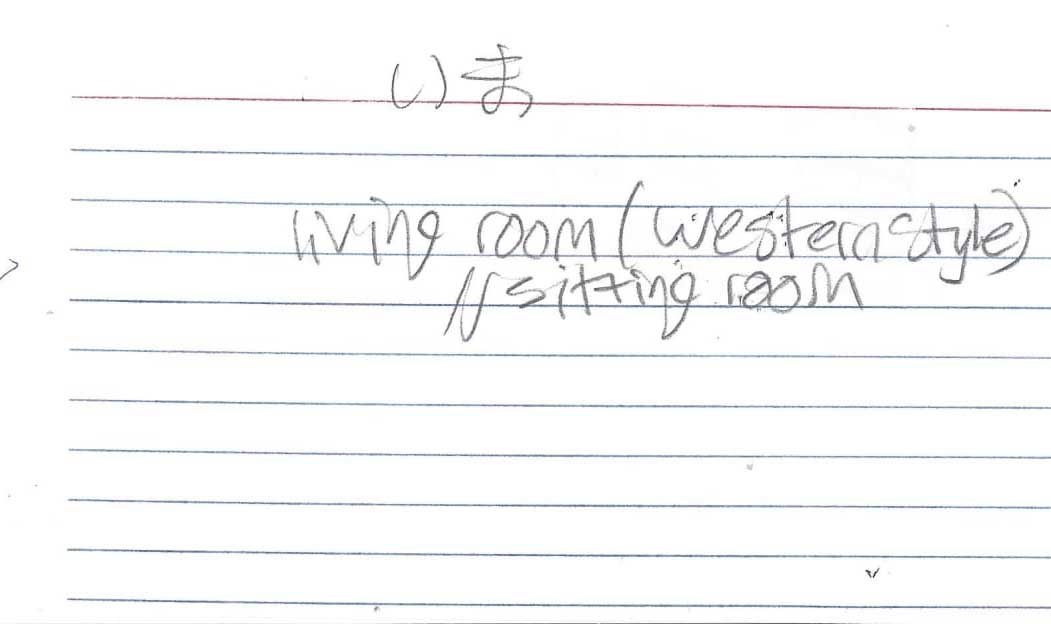 いま
living room (western style)
// sitting room